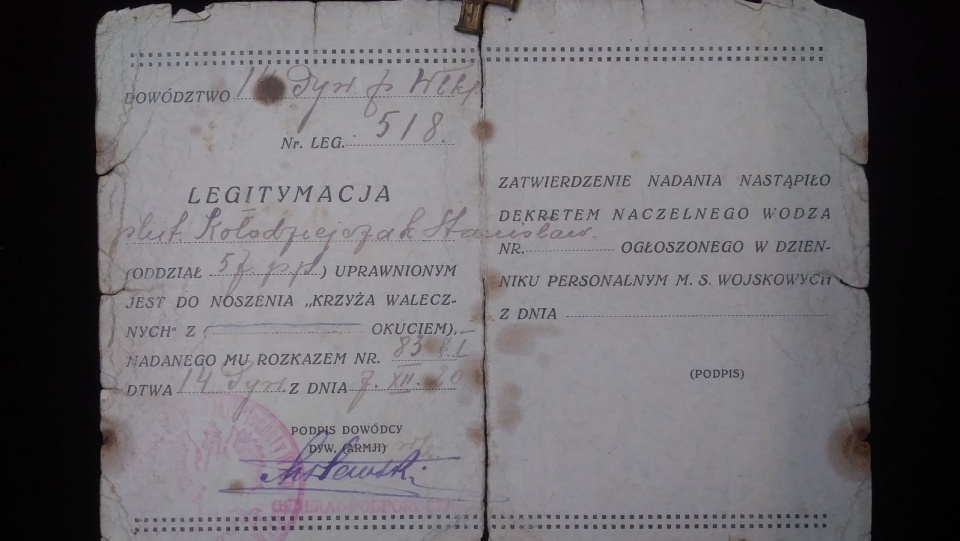 DOWÓDZTWO 14 Dyw p Wlkp.
Nr. LEG. 518.
LEGITYMACJA
plut. Kołodziejczak Stanisław.
(ODDZIAŁ 57 p.p.) UPRAWNIONYM
JEST DO NOSZENIA „KRZYŻA WALECZ-
NYCH" Z ( OKUCIEM),
NADANEGO MU ROZKAZEM NR. 83
DTWA 14 Dyw. Z DNIA 7. XII. 20
PODPIS DOWÓDCY
DYW. (ARMJI)
ZATWIERDZENIE NADANIA NASTĄPIŁO
DEKRETEM NACZELNEGO WODZA
NR. OGŁOSZONEGO W DZIEN-
NIKU PERSONALNYM M. S. WOJSKOWYCH
Z DNIA
(PODPIS)